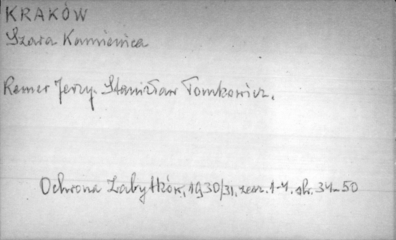 KRAKÓW
Szara Kamienica
Remer Jerzy. Stanisław Tomkowicz.
Ochrona Zabytków, 1930/31, zesz. 1-4. str. 34-50